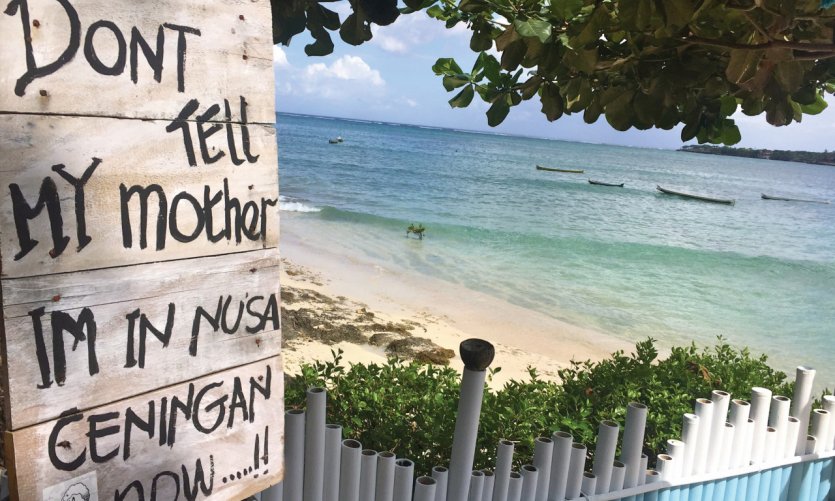 DONT
TELL
MY MOTHER
IM IN NUSA
CENINGAN
NOW.....!!